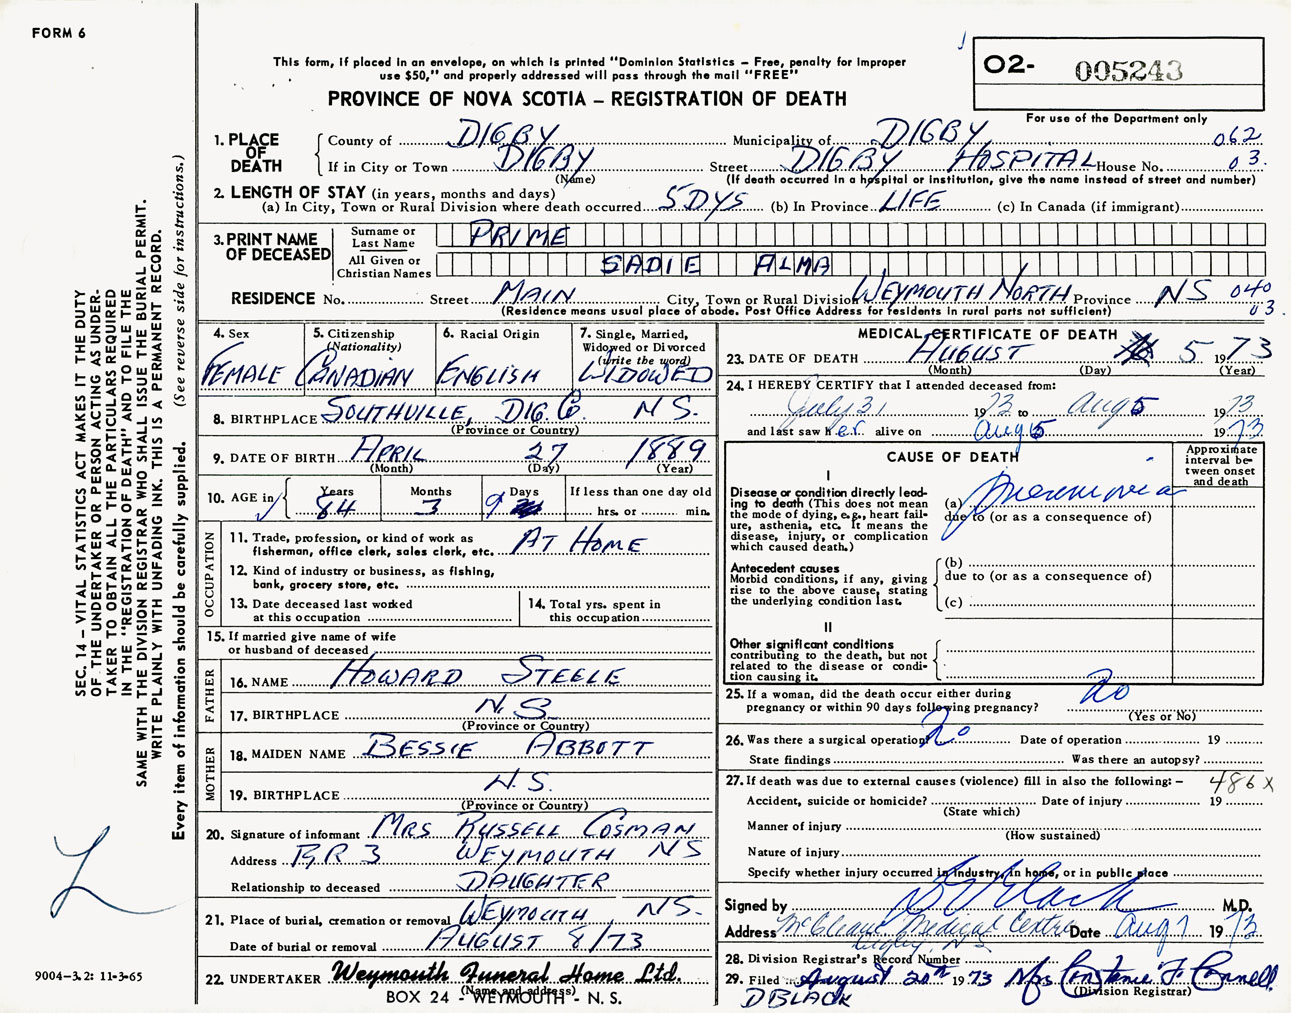 FORM 6
This form, if placed in an envelope, on which is printed "Dominion Statistics – Free, penalty for improper
use $50," and properly addressed will pass through the mail "FREE"
PROVINCE OF NOVA SCOTIA – REGISTRATION OF DEATH
O2- 005243
For use of the Department only
1. PLACE OF DEATH
County of DIGBY Municipality of DIGBY 062
If in City or Town DIGBY Street DIGBY HOSPITAL House No. 03.
(Name) (If death occurred in a hospital or institution, give the name instead of street and number)
2. LENGTH OF STAY (in years, months and days)
(a) In City, Town or Rural Division where death occurred 5 DYS (b) In Province LIFE (c) In Canada (if immigrant)
3. PRINT NAME OF DECEASED
Surname or Last Name PRIME
All Given or Christian Names SADIE ALMA
RESIDENCE No. Street MAIN City, Town or Rural Division WEYMOUTH NORTH Province NS 040
(Residence means usual place of abode. Post Office Address for residents in rural parts not sufficient) 03.
4. Sex FEMALE
5. Citizenship (Nationality) CANADIAN
6. Racial Origin ENGLISH
7. Single, Married, Widowed or Divorced (write the word) WIDOWED
8. BIRTHPLACE SOUTHVILLE, DIG. Co. N S.
(Province or Country)
9. DATE OF BIRTH APRIL 27 1889
(Month) (Day) (Year)
10. AGE in Years 84 Months 3 Days 9 If less than one day old
hrs. or min.
OCCUPATION
11. Trade, profession, or kind of work as
fisherman, office clerk, sales clerk, etc. AT HOME
12. Kind of industry or business, as fishing,
bank, grocery store, etc.
13. Date deceased last worked
at this occupation
14. Total yrs. spent in
this occupation
15. If married give name of wife
or husband of deceased
FATHER
16. NAME HOWARD STEELE
17. BIRTHPLACE N.S.
(Province or Country)
MOTHER
18. MAIDEN NAME BESSIE ABBOTT
19. BIRTHPLACE N.S.
(Province or Country)
20. Signature of informant MRS RUSSELL COSMAN
Address R.R 3 WEYMOUTH NS
Relationship to deceased DAUGHTER
21. Place of burial, cremation or removal WEYMOUTH, NS.
Date of burial or removal AUGUST 8/73
22. UNDERTAKER Weymouth Funeral Home Ltd.
(Name and address)
BOX 24 - WEYMOUTH - N. S.
MEDICAL CERTIFICATE OF DEATH
23. DATE OF DEATH AUGUST 5 1973
(Month) (Day) (Year)
24. I HEREBY CERTIFY that I attended deceased from:
July 31 1973 to Aug 5 1973
and last saw her alive on Aug 5 1973
CAUSE OF DEATH
Approximate interval between onset and death
I
Disease or condition directly lead-
ing to death (This does not mean
the mode of dying, e.g., heart fail-
ure, asthenia, etc. It means the
disease, injury, or complication
which caused death.)
(a) Pneumonia
due to (or as a consequence of)
Antecedent causes
Morbid conditions, if any, giving
rise to the above cause, stating
the underlying condition last.
(b)
due to (or as a consequence of)
(c)
II
Other significant conditions
contributing to the death, but not
related to the disease or condi-
tion causing it.
25. If a woman, did the death occur either during
pregnancy or within 90 days following pregnancy? No
(Yes or No)
26. Was there a surgical operation? No Date of operation 19
State findings Was there an autopsy?
27. If death was due to external causes (violence) fill in also the following: – 486 X
Accident, suicide or homicide? Date of injury 19
(State which)
Manner of injury
(How sustained)
Nature of injury
Specify whether injury occurred in industry, in home, or in public place
Signed by M.D.
Address Medical Centre Date Aug 7 1973
Digby, NS
28. Division Registrar's Record Number
29. Filed August 20th 1973 Mrs Constance F. Connell
(Division Registrar)
D BLACK
SEC. 14 – VITAL STATISTICS ACT MAKES IT THE DUTY
OF THE UNDERTAKER OR PERSON ACTING AS UNDER-
TAKER TO OBTAIN ALL THE PARTICULARS REQUIRED
IN THE "REGISTRATION OF DEATH" AND TO FILE THE
SAME WITH THE DIVISION REGISTRAR WHO SHALL ISSUE THE BURIAL PERMIT.
WRITE PLAINLY WITH UNFADING INK. THIS IS A PERMANENT RECORD.
Every item of information should be carefully supplied. (See reverse side for instructions.)
9004-3.2: 11-3-65